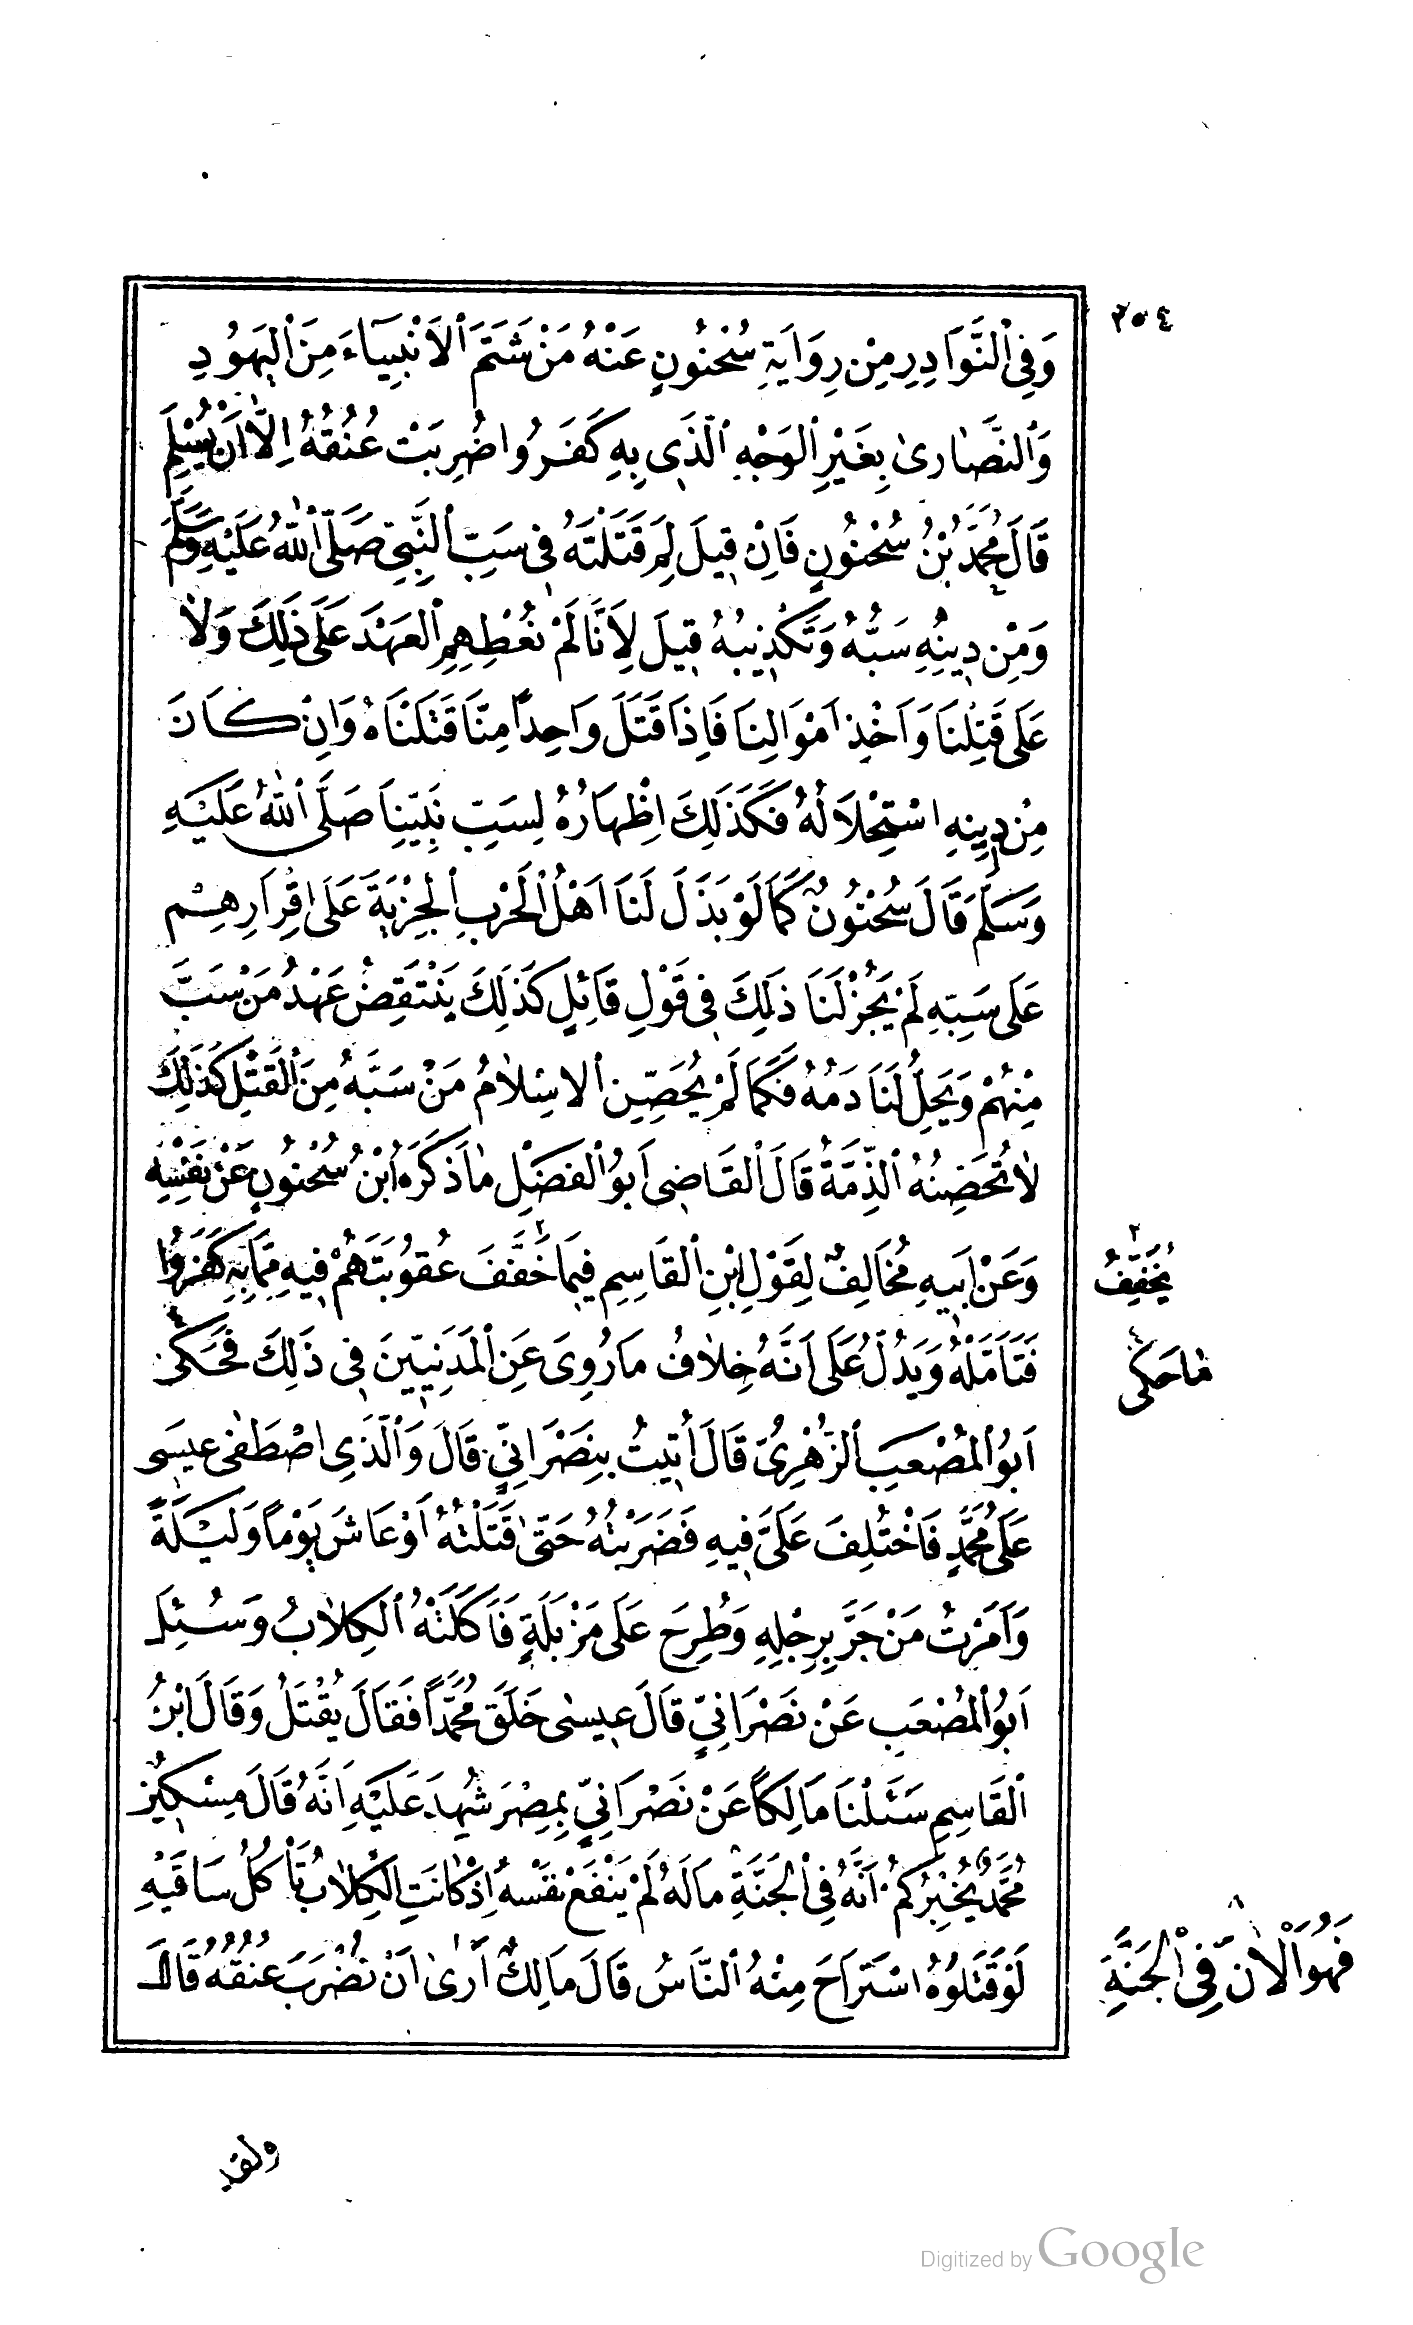 ٢٥٤
وَفِي ٱلنَّوَادِرِ مِنْ رِوَايَةِ سُحْنُونٍ عَنْهُ مَنْ شَتَمَ ٱلاَنْبِيَآءَ مِنَ ٱلْيَهُودِ
وَٱلنَّصَارىٰ بِغَيْرِ ٱلْوَجْهِ ٱلَّذِى بِهِ كَفَرُوا ضُرِبَتْ عُنُقُهُ اِلَّا اَنْ يُسْلِمَ
قَالَ مُحَمَّدُ بْنُ سُحْنُونٍ فَاِنْ قِيلَ لِمَ قَتَلْتَهُ فِى سَبِّ ٱلنَّبِىِّ صَلَّى ٱللّٰهُ عَلَيْهِ وَسَلَّمَ
وَمِنْ دِينِهِ سَبُّهُ وَتَكْذِيبُهُ قِيلَ لِاَنَّا لَمْ نُعْطِهِمِ ٱلْعَهْدَ عَلَى ذَلِكَ وَلَا
عَلَى قَتْلِنَا وَاَخْذِ اَمْوَالِنَا فَاِذَا قَتَلَ وَاحِدًا مِنَّا قَتَلْنَاهُ وَاِنْ كَانَ
مِنْ دِينِهِ اسْتِحْلَالُهُ فَكَذَلِكَ اِظْهَارُهُ لِسَبِّ نَبِيِّنَا صَلَّى ٱللّٰهُ عَلَيْهِ
وَسَلَّمَ قَالَ سُحْنُونٌ كَمَا لَوْ بَذَلَ لَنَا اَهْلُ ٱلْحَرْبِ ٱلْجِزْيَةَ عَلَى اِقْرَارِهِمْ
عَلَى سَبِّهِ لَمْ يَجُزْ لَنَا ذَلِكَ فِى قَوْلِ قَائِلٍ كَذَلِكَ يَنْتَقِضُ عَهْدُ مَنْ سَبَّ
مِنْهُمْ وَيَحِلُّ لَنَا دَمُهُ فَكَمَا لَمْ يُحَصِّنِ ٱلاِسْلَامُ مَنْ سَبَّهُ مِنَ ٱلْقَتْلِ كَذَلِكَ
لَا تُحَصِّنُهُ ٱلذِّمَّةُ قَالَ ٱلْقَاضِى اَبُو ٱلْفَضْلِ مَا ذَكَرَهُ ابْنُ سُحْنُونٍ عَنْ نَفْسِهِ
وَعَنْ اَبِيهِ مُخَالِفٌ لِقَوْلِ ابْنِ ٱلْقَاسِمِ فِيمَا خَفَّفَ ٢ عُقُوبَتَهُمْ فِيهِ مِمَّا بِهِ كَفَرُوا
فَتَأَمَّلْهُ وَيَدُلُّ عَلَى اَنَّهُ خِلَافُ مَا رُوِىَ عَنِ ٱلْمَدَنِيِّينَ فِى ذَلِكَ فَحَكَى ٤
اَبُو ٱلْمُصْعَبِ ٱلزُّهْرِىُّ قَالَ اُتِيتُ بِنَصْرَانِىٍّ قَالَ وَٱلَّذِى اصْطَفَى عِيسَى
عَلَى مُحَمَّدٍ فَاخْتُلِفَ عَلَىَّ فِيهِ فَضَرَبْتُهُ حَتَّى قَتَلْتُهُ اَوْ عَاشَ يَوْمًا وَلَيْلَةً
وَاَمَرْتُ مَنْ جَرَّ بِرِجْلِهِ وَطُرِحَ عَلَى مَزْبَلَةٍ فَاَكَلَتْهُ ٱلْكِلَابُ وَسُئِلَ
اَبُو ٱلْمُصْعَبِ عَنْ نَصْرَانِىٍّ قَالَ عِيسَى خَلَقَ مُحَمَّدًا فَقَالَ يُقْتَلُ وَقَالَ ابْنُ
ٱلْقَاسِمِ سَئَلْنَا مَالِكًا عَنْ نَصْرَانِىٍّ بِمِصْرَ شُهِدَ عَلَيْهِ اَنَّهُ قَالَ مِسْكِينٌ
مُحَمَّدٌ يُخْبِرُكُمْ اَنَّهُ فِى ٱلْجَنَّةِ ٨ مَا لَهُ لَمْ يَنْفَعْ نَفْسَهُ اِذْ كَانَتِ ٱلْكِلَابُ تَأْكُلُ سَاقَيْهِ
لَوْ قَتَلُوهُ اسْتَرَاحَ مِنْهُ ٱلنَّاسُ قَالَ مَالِكٌ اَرَىٰ اَنْ تُضْرَبَ عُنُقُهُ قَالَ
٢
يُخَفِّفُ
٤
مَا حَكَى
٨
فَهُوَ ٱلْاٰنَ فِى ٱلْجَنَّةِ
ولقد
Digitized by Google